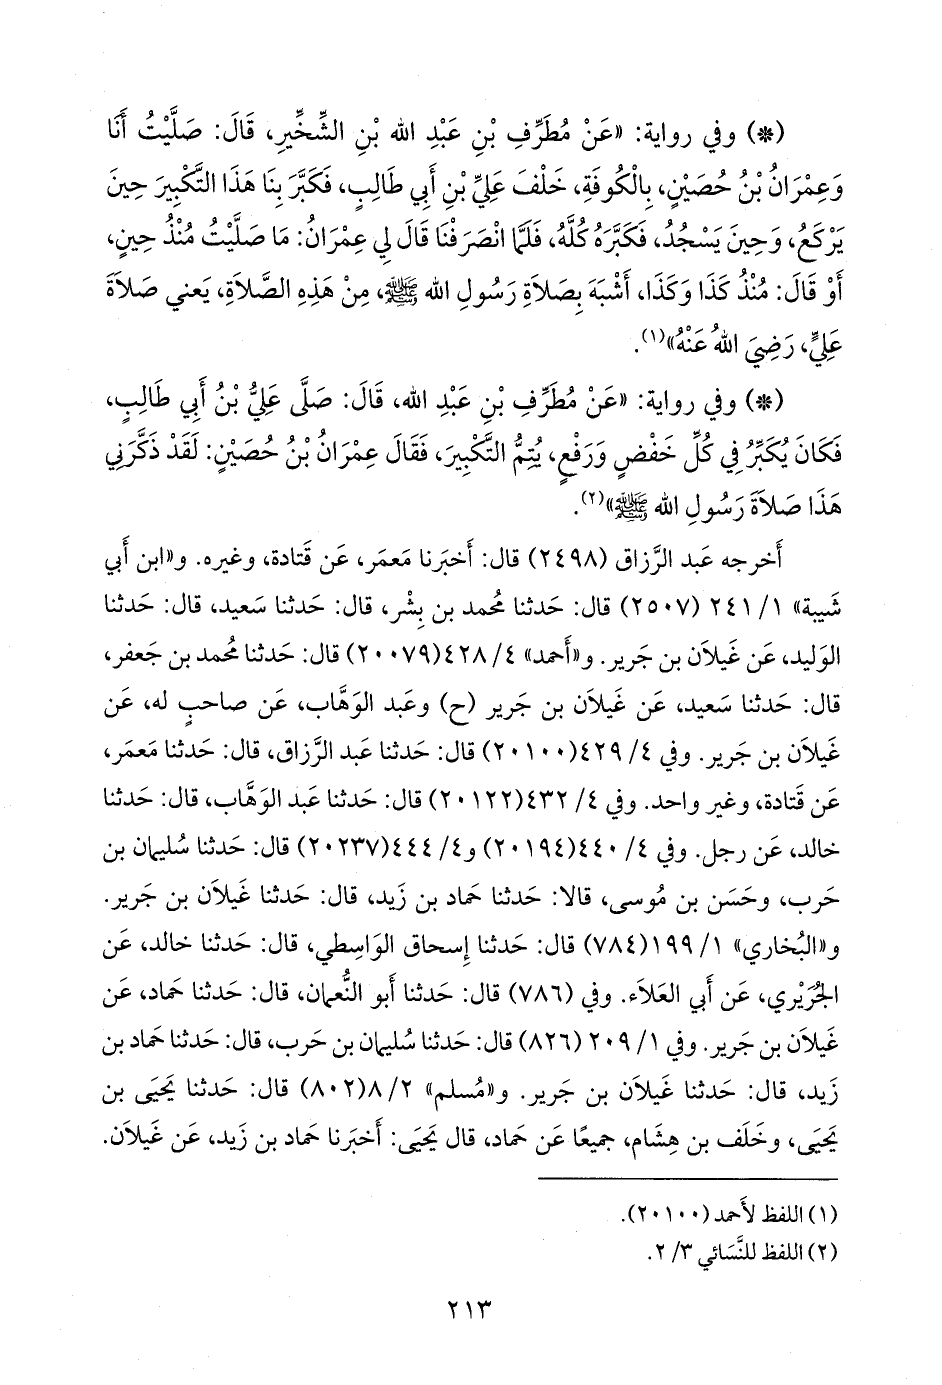 (*) وفي رواية: «عَنْ مُطَرِّفِ بْنِ عَبْدِ الله بْنِ الشِّخِّيرِ، قَالَ: صَلَّيْتُ أَنَا
وَعِمْرَانُ بْنُ حُصَيْنٍ، بِالْكُوفَةِ، خَلْفَ عَلِيِّ بْنِ أَبِي طَالِبٍ، فَكَبَّرَ بِنَا هَذَا التَّكْبِيرَ حِينَ
يَرْكَعُ، وَحِينَ يَسْجُدُ، فَكَبَّرَهُ كُلَّهُ، فَلَمَّا انْصَرَفْنَا قَالَ لِي عِمْرَانُ: مَا صَلَّيْتُ مُنْذُ حِينٍ،
أَوْ قَالَ: مُنْذُ كَذَا وَكَذَا، أَشْبَهَ بِصَلاَةِ رَسُولِ الله ﷺ، مِنْ هَذِهِ الصَّلاَةِ، يَعني صَلاَةَ
عَلِيٍّ، رَضِيَ اللهُ عَنْهُ»(١).
(*) وفي رواية: «عَنْ مُطَرِّفِ بْنِ عَبْدِ الله، قَالَ: صَلَّى عَلِيُّ بْنُ أَبِي طَالِبٍ،
فَكَانَ يُكَبِّرُ فِي كُلِّ خَفْضٍ وَرَفْعٍ، يُتِمُّ التَّكْبِيرَ، فَقَالَ عِمْرَانُ بْنُ حُصَيْنٍ: لَقَدْ ذَكَّرَنِي
هَذَا صَلاَةَ رَسُولِ الله ﷺ»(٢).
أَخرجه عَبد الرَّزاق (٢٤٩٨) قال: أَخبَرنا مَعمَر، عَن قَتادة، وغيره. و«ابن أَبي
شَيبة» ١/ ٢٤١ (٢٥٠٧) قال: حَدثنا مُحمد بن بِشْر، قال: حَدثنا سَعيد، قال: حَدثنا
الوَليد، عَن غَيلاَن بن جَرير. و«أَحمد» ٤/ ٤٢٨(٢٠٠٧٩) قال: حَدثنا مُحمد بن جَعفر،
قال: حَدثنا سَعيد، عَن غَيلاَن بن جَرير (ح) وعَبد الوَهَّاب، عَن صاحبٍ له، عَن
غَيلاَن بن جَرير. وفي ٤/ ٤٢٩(٢٠١٠٠) قال: حَدثنا عَبد الرَّزاق، قال: حَدثنا مَعمَر،
عَن قَتادة، وغير واحد. وفي ٤/ ٤٣٢(٢٠١٢٢) قال: حَدثنا عَبد الوَهَّاب، قال: حَدثنا
خالد، عَن رجل. وفي ٤/ ٤٤٠(٢٠١٩٤) و٤/ ٤٤٤(٢٠٢٣٧) قال: حَدثنا سُليمان بن
حَرب، وحَسَن بن مُوسى، قالا: حَدثنا حَماد بن زَيد، قال: حَدثنا غَيلاَن بن جَرير.
و«البُخاري» ١/ ١٩٩(٧٨٤) قال: حَدثنا إِسحاق الوَاسِطي، قال: حَدثنا خالد، عَن
الجُرَيْري، عَن أَبي العَلاَء. وفي (٧٨٦) قال: حَدثنا أَبو النُّعمان، قال: حَدثنا حَماد، عَن
غَيلاَن بن جَرير. وفي ١/ ٢٠٩ (٨٢٦) قال: حَدثنا سُليمان بن حَرب، قال: حَدثنا حَماد بن
زَيد، قال: حَدثنا غَيلاَن بن جَرير. و«مُسلم» ٢/ ٨(٨٠٢) قال: حَدثنا يَحيَى بن
يَحيَى، وخَلَف بن هِشَام، جميعًا عَن حَماد، قال يَحيَى: أَخبَرنا حَماد بن زَيد، عَن غَيلاَن.
(١) اللفظ لأَحمد (٢٠١٠٠).
(٢) اللفظ للنَّسَائي ٣/ ٢.
٢١٣